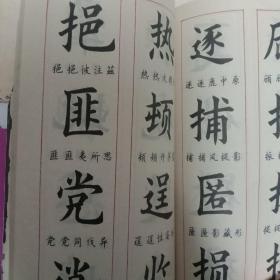 挹 热 逐
挹挹彼注兹 热热火 逐逐鹿中原
匪 顿 捕
匪匪夷所思 顿顿开茅 捕捕风捉影
党 逞 匿
党党同伐异 逞逞性 匿匿影藏形
收 损